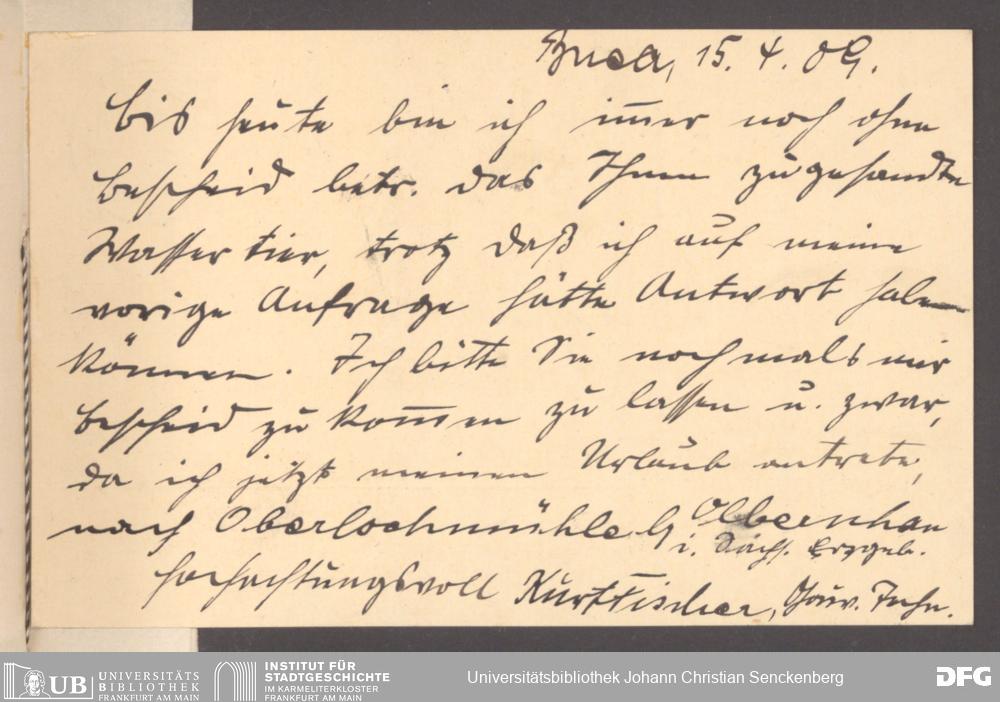 Buea, 15. 4. 09.
Bis heute bin ich im̅er noch ohne
Bescheid betr. das Ihnen zugesandte
Wassertier, trotz daß ich auf meine
vorige Anfrage hätte Antwort haben
können. Ich bitte Sie nochmals mir
Bescheid zu kom̅en zu lassen u. zwar,
da ich jetzt meinen Urlaub antrete,
nach Oberlochmühle b/ Olbernhau
i. Sächs. Erzgeb.
Hochachtungsvoll Kurt Fischer, Gouv.
UB UNIVERSITÄTS
BIBLIOTHEK
FRANKFURT AM MAIN
INSTITUT FÜR
STADTGESCHICHTE
IM KARMELITERKLOSTER
FRANKFURT AM MAIN
Universitätsbibliothek Johann Christian Senckenberg
DFG